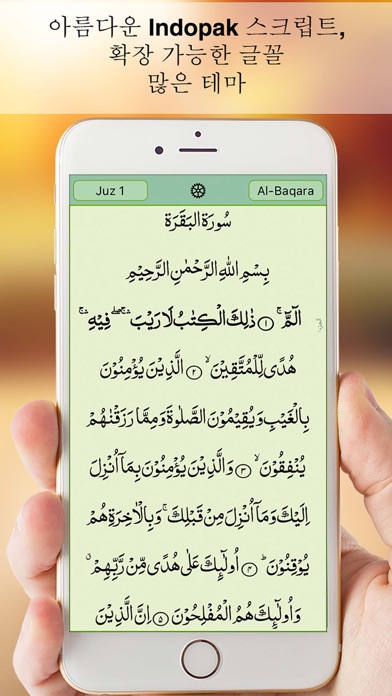 아름다운 Indopak 스크립트,
확장 가능한 글꼴
많은 테마
Juz 1
Al-Baqara
سُورَةُ الْبَقَرَة
بِسْمِ اللهِ الرَّحْمٰنِ الرَّحِيْمِ
الٓمّٓ ۚ ۝١ ذٰلِكَ الْكِتٰبُ لَا رَيْبَ ۛۖۚ فِيْهِ ۛۚ
هُدًى لِّلْمُتَّقِيْنَ ۙ ۝٢ الَّذِيْنَ يُؤْمِنُوْنَ
بِالْغَيْبِ وَيُقِيْمُوْنَ الصَّلٰوةَ وَمِمَّا رَزَقْنٰهُمْ
يُنْفِقُوْنَ ۙ ۝٣ وَالَّذِيْنَ يُؤْمِنُوْنَ بِمَاۤ اُنْزِلَ
اِلَيْكَ وَمَاۤ اُنْزِلَ مِنْ قَبْلِكَ ۚ وَبِالْاٰخِرَةِ هُمْ
يُوْقِنُوْنَ ؕ ۝٤ اُولٰٓئِكَ عَلٰى هُدًى مِّنْ رَّبِّهِمْ ۙ
وَاُولٰٓئِكَ هُمُ الْمُفْلِحُوْنَ ۝٥ اِنَّ الَّذِيْنَ